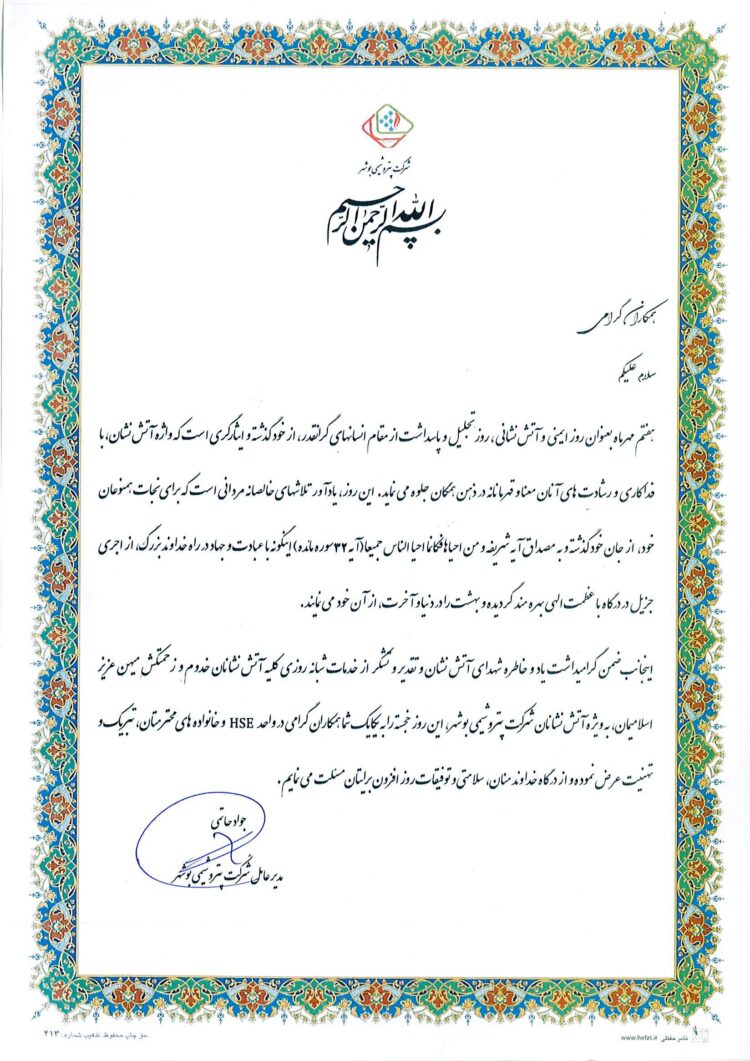 شرکت پتروشیمی بوشهر
بسم الله الرحمن الرحیم
همکاران گرامی
سلام علیکم
هفتم مهرماه بعنوان روز ایمنی و آتش نشانی، روز تجلیل و پاسداشت از مقام انسانهای گرانقدر، از خود گذشته و ایثارگری است که واژه آتش نشان، با
فداکاری و رشادت های آنان معنا و قهرمانانه در ذهن همگان جلوه می نماید. این روز، یادآور تلاشهای خالصانه مردانی است که برای نجات همنوعان
خود، از جان خود گذشته و به مصداق آیه شریفه و من احیاها فکانما احیا الناس جمیعا(آیه ۳۲ سوره مائده) اینگونه با عبادت و جهاد در راه خداوند بزرگ، از اجری
جزیل در درگاه با عظمت الهی بهره مند گردیده و بهشت را در دنیا و آخرت، از آن خود می نمایند.
اینجانب ضمن گرامیداشت یاد و خاطره شهدای آتش نشان و تقدیر و تشکر از خدمات شبانه روزی کلیه آتش نشانان خدوم و زحمتکش میهن عزیز
اسلامیمان، به ویژه آتش نشانان شرکت پتروشیمی بوشهر، این روز خجسته را به یکایک شما همکاران گرامی در واحد HSE و خانواده های محترمتان، تبریک و
تهنیت عرض نموده و از درگاه خداوند منان، سلامتی و توفیقات روز افزون برایتان مسئلت می نمایم.
جواد حاتمی
مدیرعامل شرکت پتروشیمی بوشهر
حق چاپ محفوظ. تذهیب شماره: ۴۱۳
نشر حفظی www.hefzi.ir